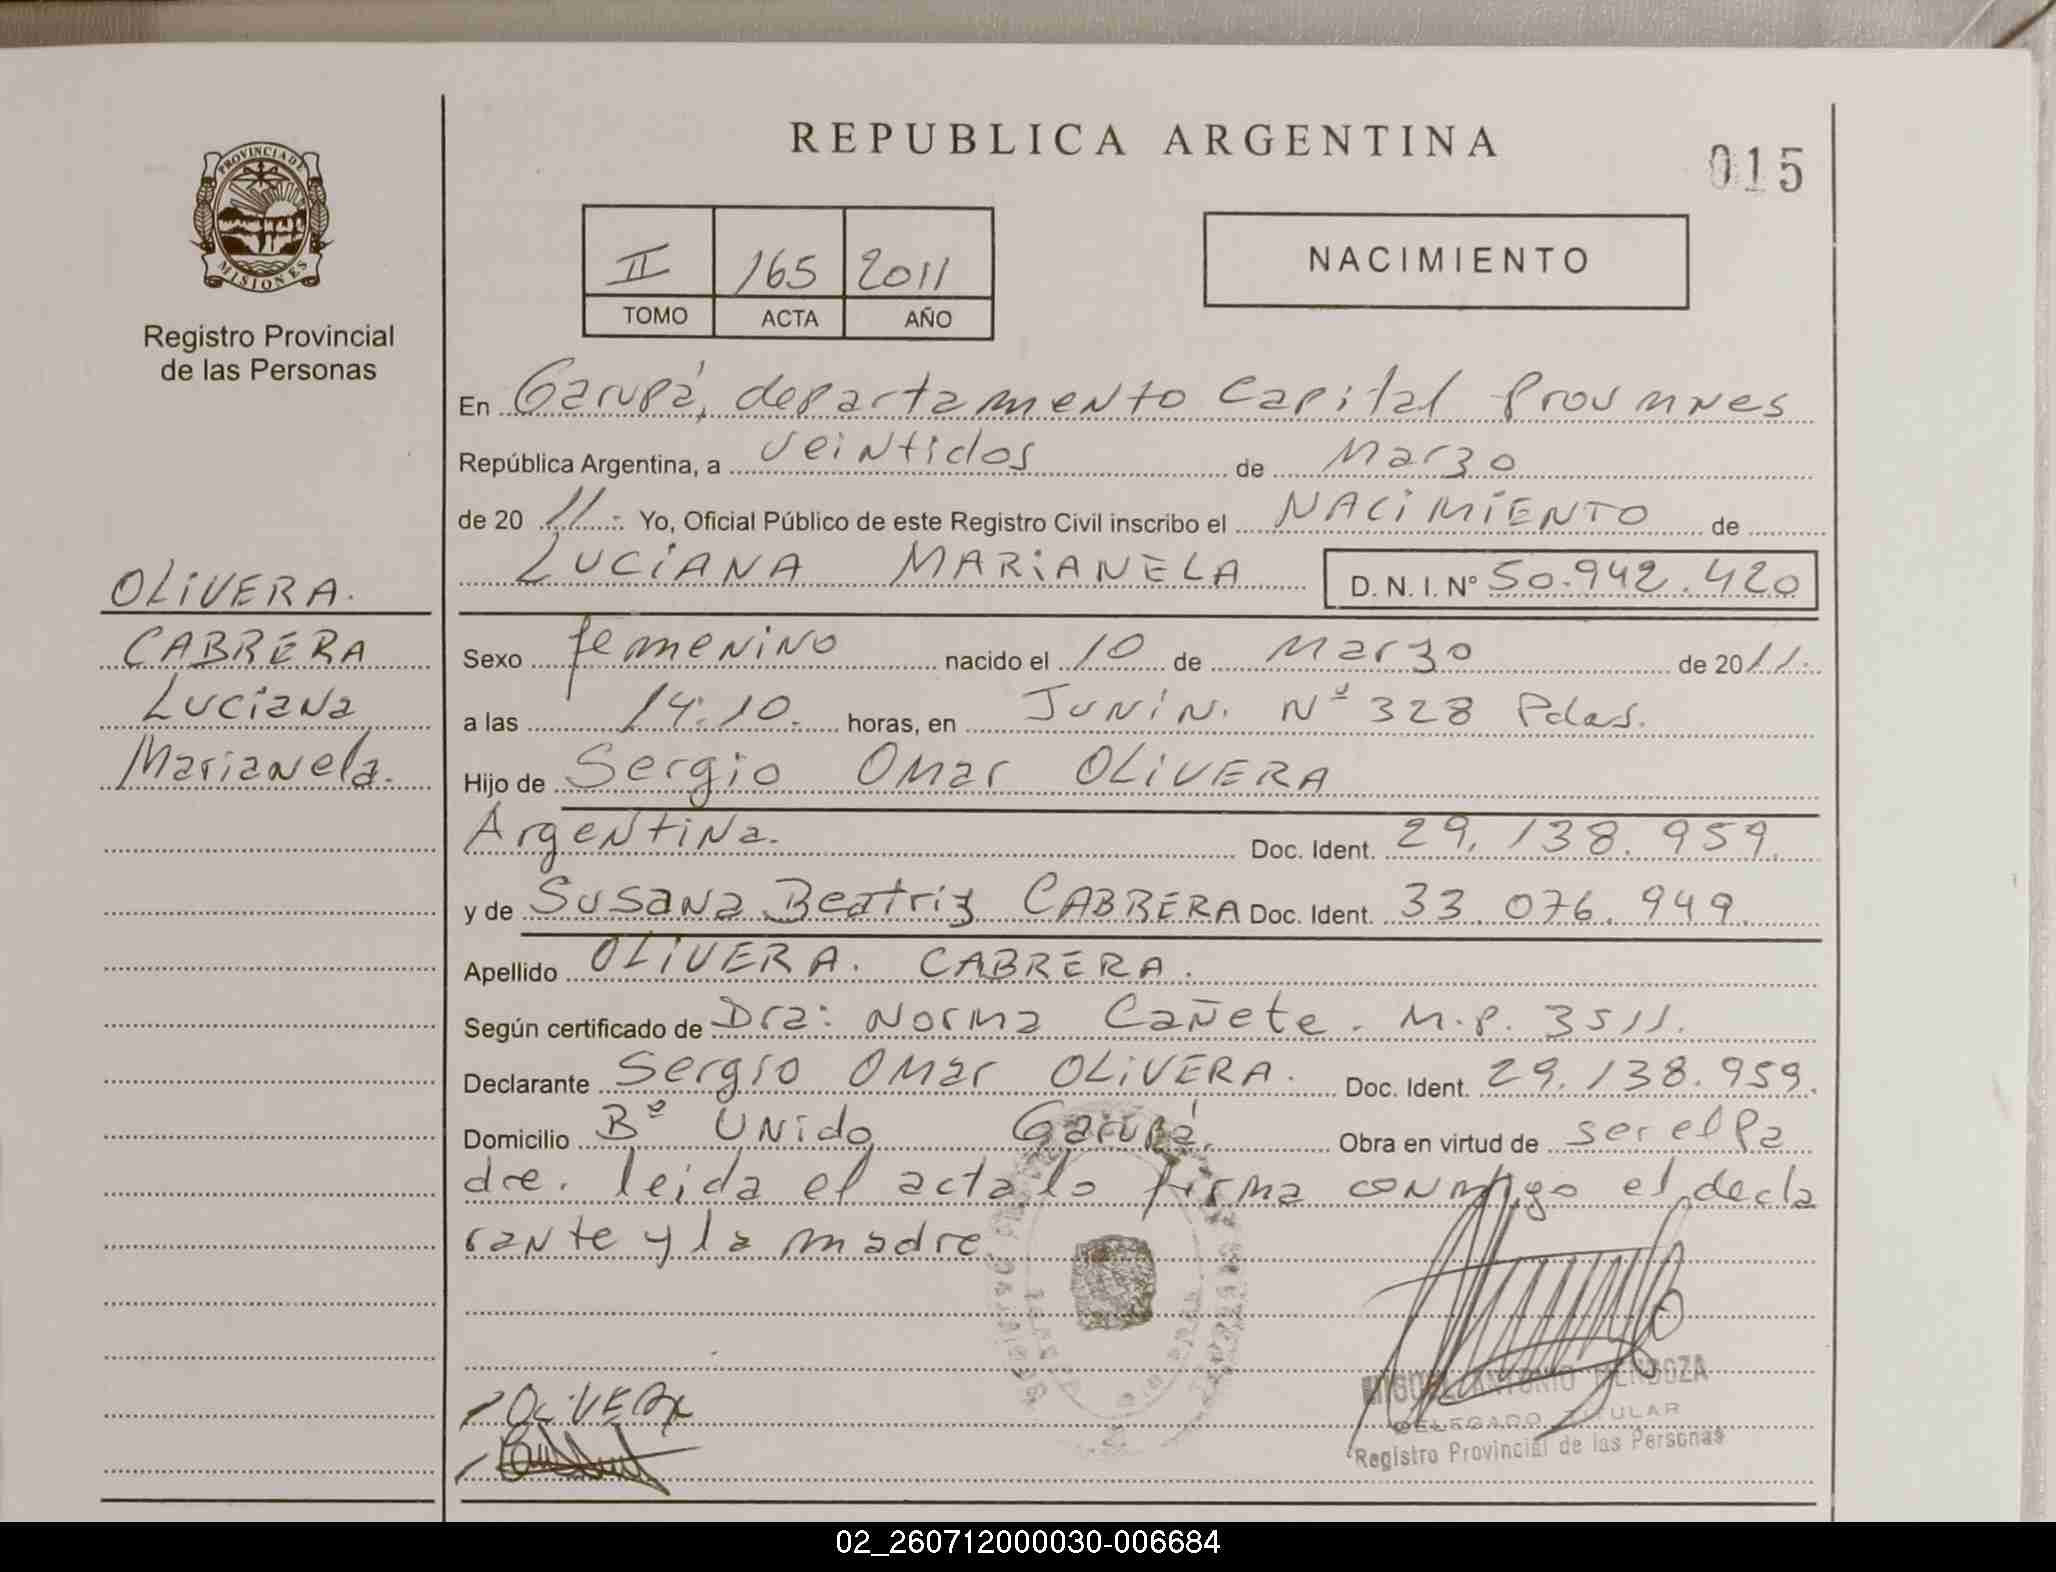 REPUBLICA ARGENTINA
015
PROVINCIA DE
MISIONES
Registro Provincial
de las Personas
II 165 2011
TOMO ACTA AÑO
NACIMIENTO
En Garupá, departamento Capital Prov mnes
República Argentina, a veintidos de Marzo
de 20 11.- Yo, Oficial Público de este Registro Civil inscribo el NACIMIENTO de
LUCIANA MARIANELA D. N. I. Nº 50.942.420
OLIVERA.
CABRERA
Luciana
Marianela.
Sexo femenino nacido el 10 de Marzo de 2011.
a las 14:10. horas, en Junín. Nº 328 Pdas.
Hijo de Sergio Omar OLIVERA
Argentina. Doc. Ident. 29.138.959.
y de Susana Beatriz CABRERA Doc. Ident. 33.076.949.
Apellido OLIVERA. CABRERA.
Según certificado de Dra: Norma Cañete. M.P. 3511.
Declarante Sergio Omar OLIVERA. Doc. Ident. 29.138.959.
Domicilio Bº Unido Garupá. Obra en virtud de ser el Pa
dre. leida el acta lo firma conmigo el decla
rante y la madre
OLIVERA
MIGUEL ANTONIO MENDOZA
DELEGADO TITULAR
Registro Provincial de las Personas
02_260712000030-006684